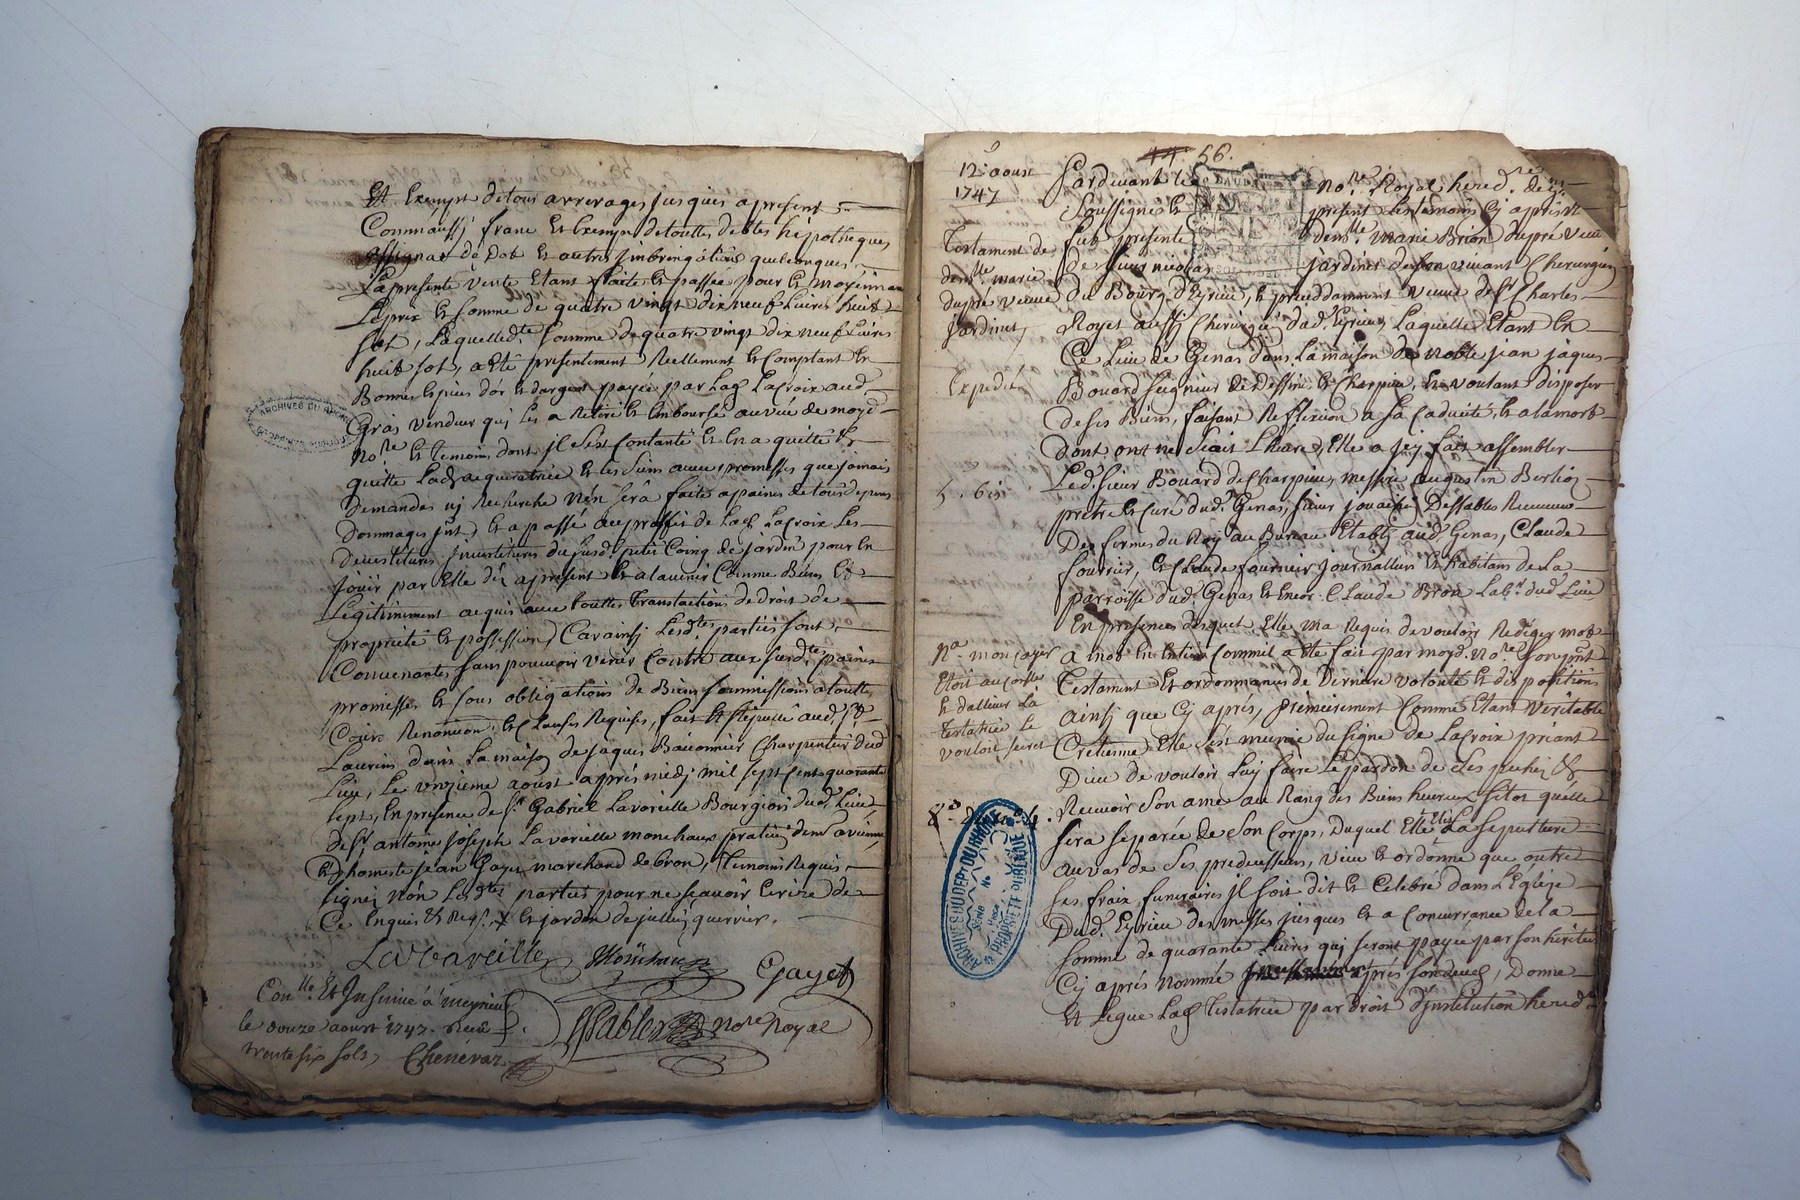 Et Exempt de tous arrerages jusques apresent
Comm'aussj franc Et Exempt de touttes debtes hipotheques
assignat de dot Et autres jmbringations quelconques
La presente vente Etant faitte Et passée pour Et moyennan
Leprix Et somme de quatre vingt dix neuf Livres huit
sot, Laquelled.te somme de quatre vingt dix neuf Livres
huit sot, a Eté presentement Reellement Et Comptant En
Bonnes Espices d'or Et d'argent payée par Lad Lacroix aud
Gras vendeur quj Les a Retiré Et Emboursé au vüe de moyd
No.re Et Temoins, dont jl s'est Contanté Et En a quitté &
quitte Lad acqueretrice Et les siens avec promesses que jamais
demandes nj Recherche n'en sera faite a paines de tous depens
Dommages jnt, Et a passé au proffit de Lad Lacroix Les
devestitures jnvestitures du susd. petit Coing de jardin pour En
Joüir par Elle dès apresent Et alavenir Comme Bien Et
Legitimement acquis avec touttes Translactions de droit de
propriété Et possession, Car ainsj Lesd.tes parties sont
Convenantes sans pouvoir venir Contre aux susd.tes paines
promisses Et sous obligations de Biens soumissions a touttes
Cours Renonciaon. Et Clauses Requises, fait Et stipullé aud. St
Laurens dans La maison de jaques Baconnier Charpentier dud
Lieu, Le vnzieme aoust après midj mil sept Cent quarante
sept, En presence de S.r Gabriel Lavoreille Bourgiois dud. Lieu
de S.r antoine Joseph Lavoreille monchaux pratic dem.t a vienne
Et honneste jean Gayet marchand de bron, Temoins Requis
signés non Les d.tes parties pour ne sçavoir Ecrire de
Ce Enquis Et Req.s
Lavoreille Monchaux Gayet
Con.llé Et Jnsinüé à meyzieu
le douze aoust 1747. Reçu
trente six sols, Chenévaz
No.re Royal
44. 56.
12.e aoust
1747
Testament de
dem.lle marie
dupre veuve
jardinet
Expedié
5. bis
N.a mon Cayer
Etoit au contr.
Et dallieur La
testatrice Le
vouloit secret
Pardevant Le No.re Royal hered.re de
Soussignés Et present Les temoins Cj après N.
fut presente dem.lle Marie Brion dupré veuve
de sieur nicolas jardinet de son vivant Chirurgien
du Bourg d'Eyrieu, Et precedamment veuve de S.r Charles
Royet aussj Chirurgien dud. Eyrieu, Laquelle Etant En
Ce Lieu de Genas dans La maison de noble jean jaques
Boüard seigneur de Dessine Et Charpieu, Et voulant disposer
de ses Biens, faisant Reflexion a sa Caducité, Et a la mort
dont ont ne sçait L'heure, Elle a jcy fait assembler
Led. sieur Boüard de Charpieu, messire augustin Berlioz
prêtre Et Curé dud. Genas, sieur Dessables Receveur
Des fermes du Roy au Bureau Etablj aud. Genas, Claude
fourrier, Et Claude fournier journallier Et habitans de La
parroisse dud. Genas Et Encor. Claude Bron Lab.r dud. Lieu
En presence desquels Elle m'a Requis de vouloir Rediger mot
a mot En Entier Comm'il a Eté fait par moyd. No.re son pnt
Testament Et ordonnance de Derniere volonté Et dispositions
ainsj que Cj après, premierement Comme Etant véritable
Cretienne Elle s'est munie du signe de Lacroix priant
Dieu de vouloir Luy faire Lepardon de Ses pechés &
Recevoir Son ame au Rang des Bien heureux sitot quelle
sera separée de Son Corps, Duquel Elle Elit La sepulture
au vas de Ses predecesseurs, veut Et ordonne que outre
Ses frais funeraires jl soit dit Et Celebré dans L'Eglise
Dud. Eyrieu des messes jusques Et a Concurrance de la
somme de quarante Livres quj seront payée par son heritier
Cj après nommé après son decés, Donne
Et Legue Lad Testatrice par droit d'jnstitution hered.re
ARCHIVES DU RHÔNE
ARCHIVES DU DEP.T DU RHÔNE